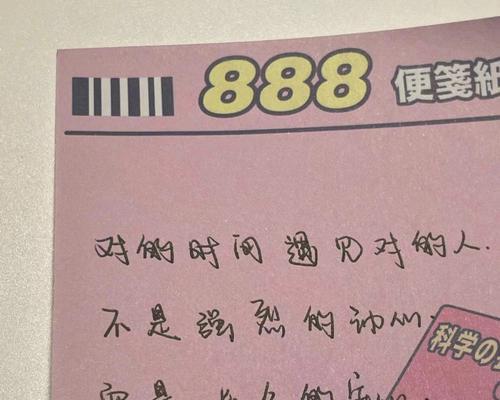 888 便箋紙
对的时间遇见对的人.
不是强烈的动心.
而是
的
科学の